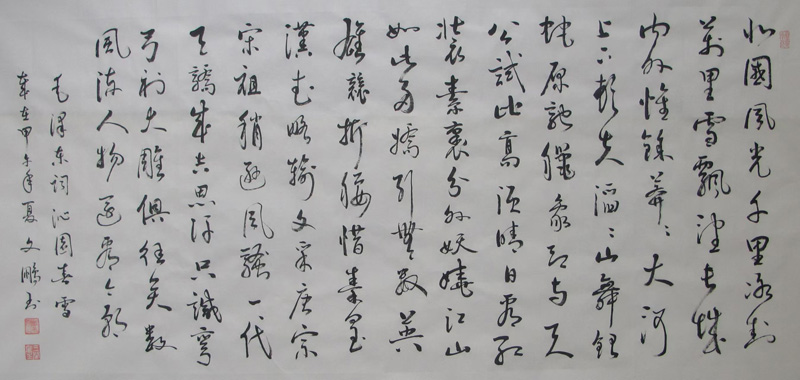 北國風光千里冰封
萬里雪飄望長城
內外惟餘莽〻大河
上下頓失滔〻山舞銀
蛇原馳蠟象欲與天
公試比高須晴日看紅
裝素裹分外妖嬈江山
如此多嬌引無數英
雄競折腰惜秦皇
漢武略輸文采唐宗
宋祖稍遜風騷一代
天驕成吉思汗只識彎
弓射大雕俱往矣數
風流人物還看今朝
毛澤東詞沁園春雪
歲在甲午年夏文鵬書